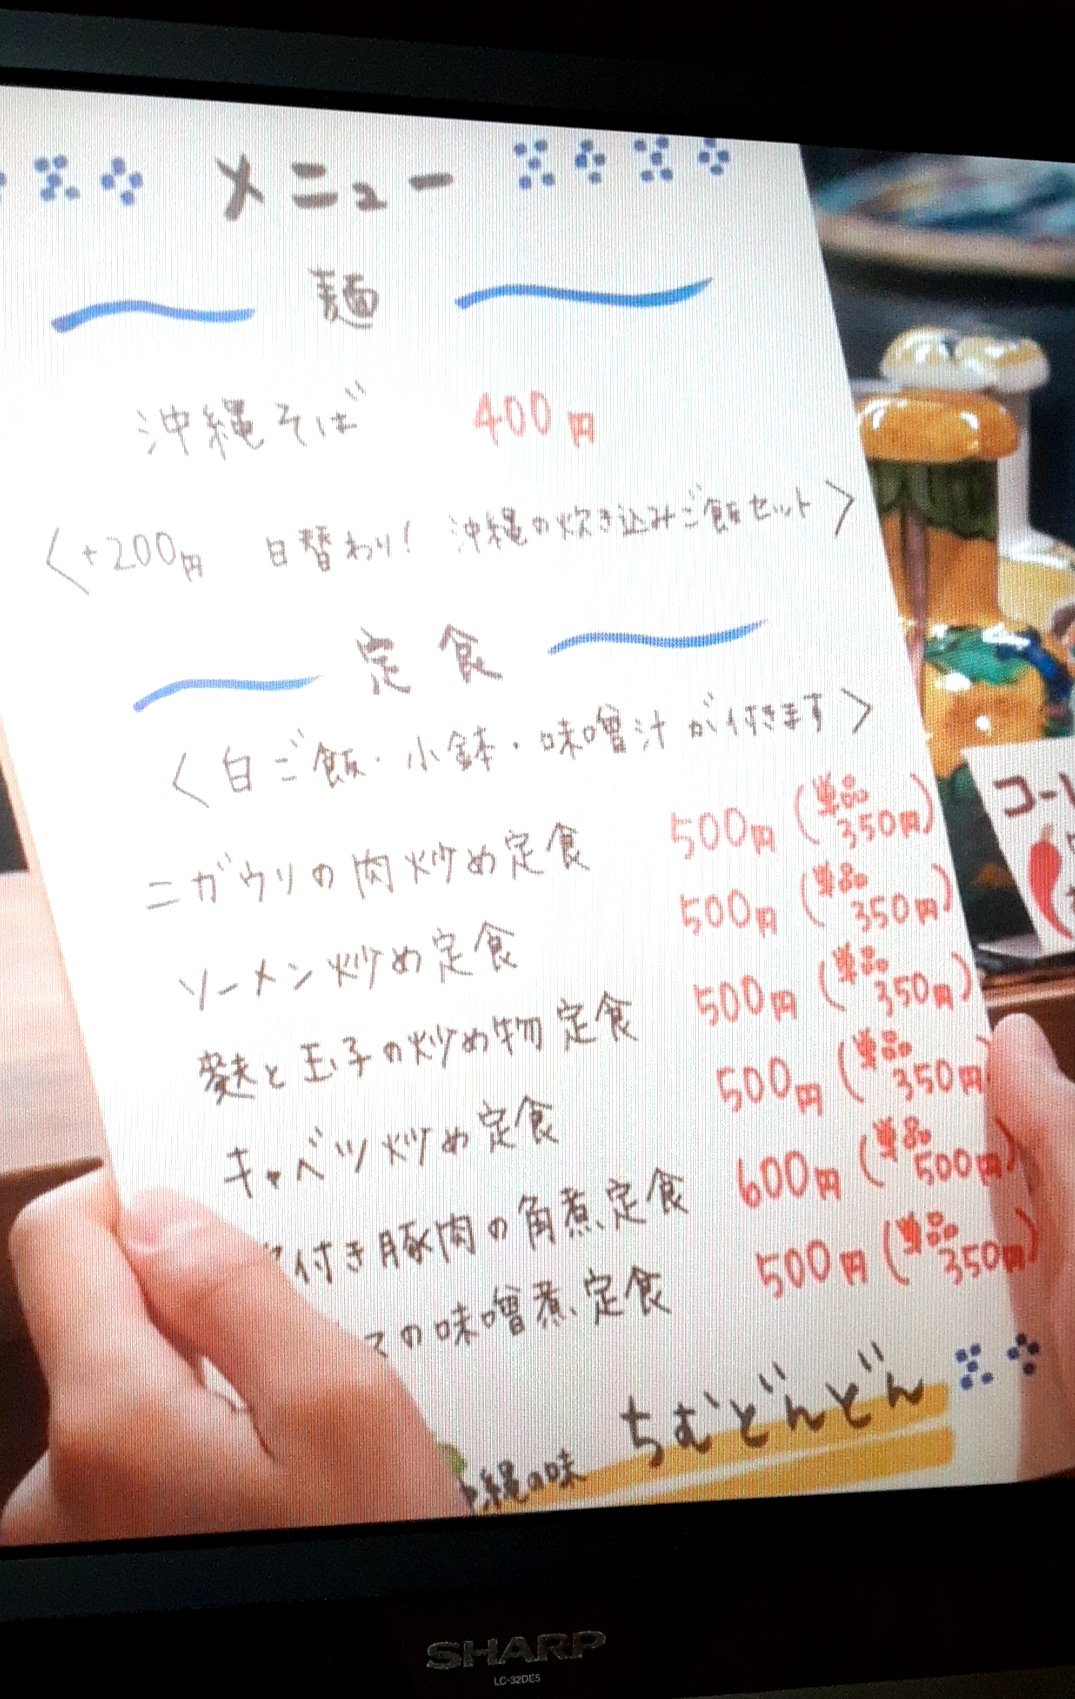 メニュー
麺
沖縄そば 400円
〈+200円 日替わり! 沖縄の炊き込みご飯セット〉
定食
〈白ご飯・小鉢・味噌汁が付きます〉
ニガウリの肉炒め定食 500円(単品350円)
ソーメン炒め定食 500円(単品350円)
麩と玉子の炒め物定食 500円(単品350円)
キャベツ炒め定食 500円(単品350円)
付き豚肉の角煮定食 600円(単品500円)
の味噌煮定食 500円(単品350円)
縄の味 ちむどんどん
コー
SHARP
LC-32DE5